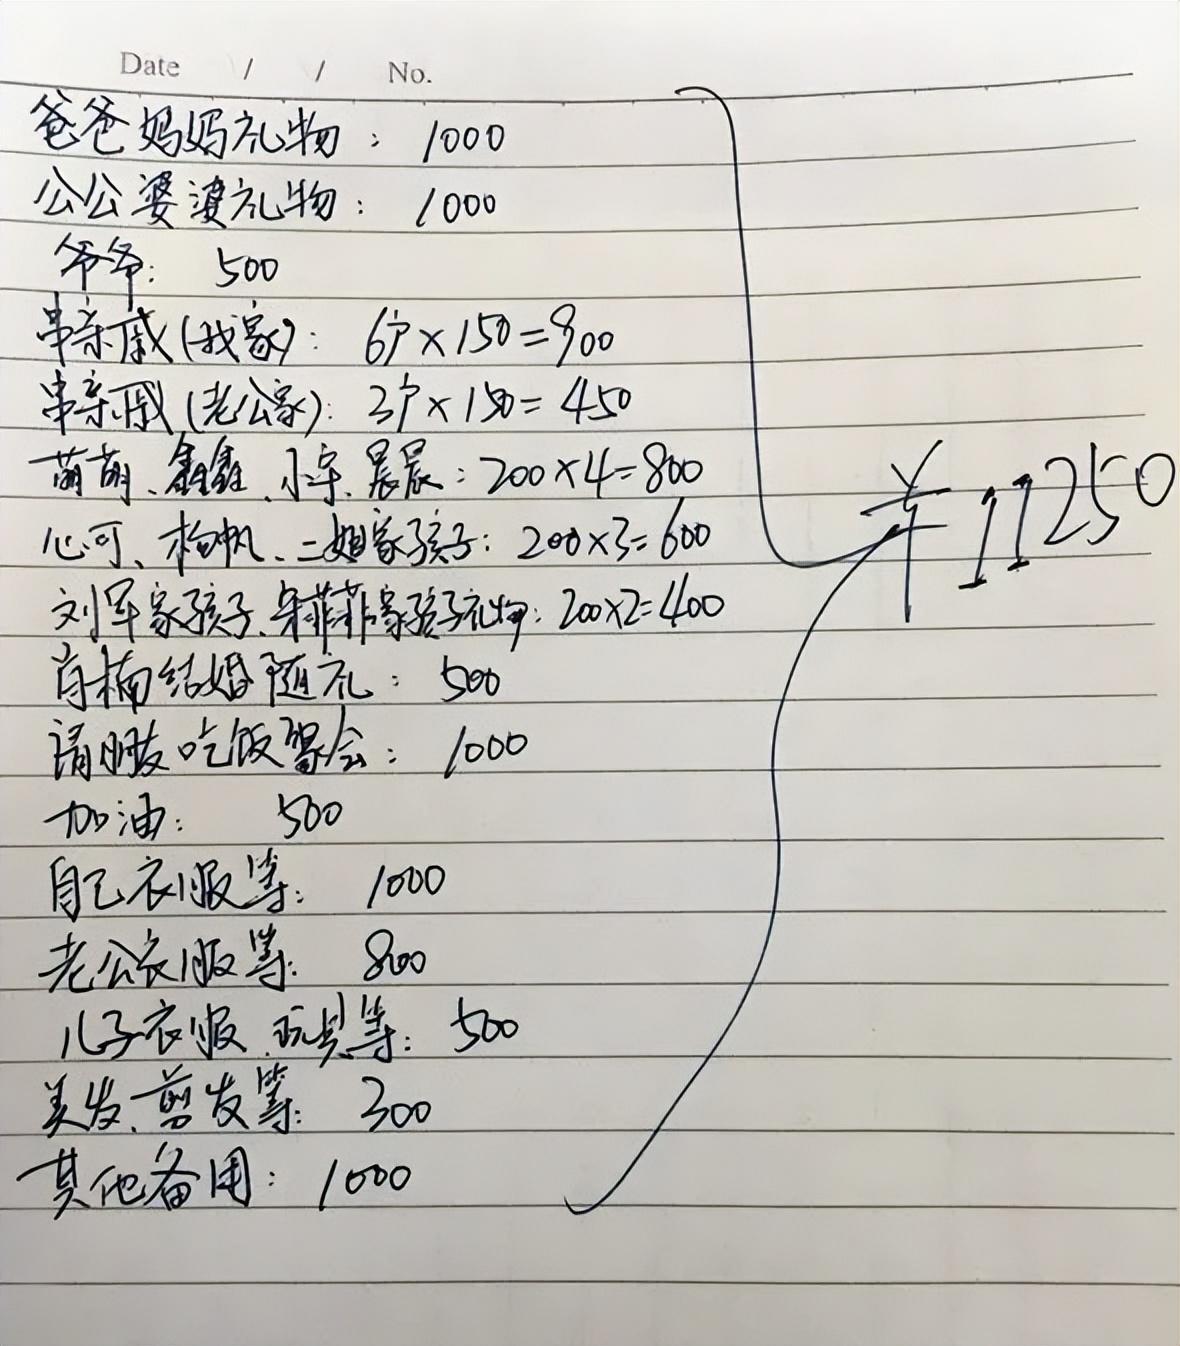 Date / / No.
爸爸妈妈礼物：1000
公公婆婆礼物：1000
爷爷：500
串亲戚(我家)：6户×150=900
串亲戚(老公家)：3户×150=450
萌萌、鑫鑫、小宇、晨晨：200×4=800
心可、杨帆、二姐家孩子：200×3=600
刘军家孩子、朱菲菲家孩子礼物：200×2=400
肖楠结婚随礼：500
请朋友吃饭聚会：1000
加油：500
自己衣服等：1000
老公衣服等：800
儿子衣服、玩具等：500
美发、剪发等：300
其他备用：1000
￥11250